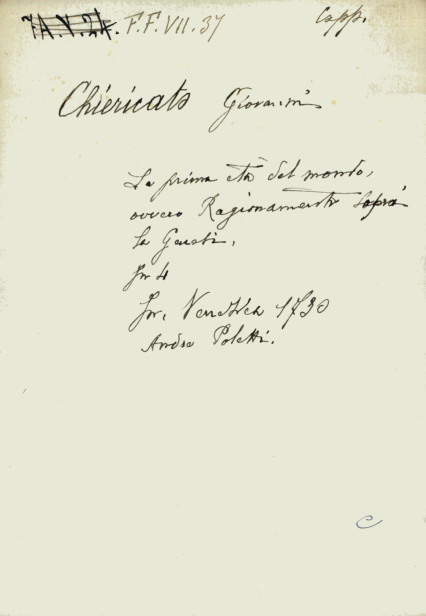 7A.V.24. F.F.VII.37 Capp.
Chiericato Giovanni
La prima età del mondo,
ovvero Ragionamenti sopra
la Genesi.
In 4
In, Venezia 1730
Andrea Poletti.
C